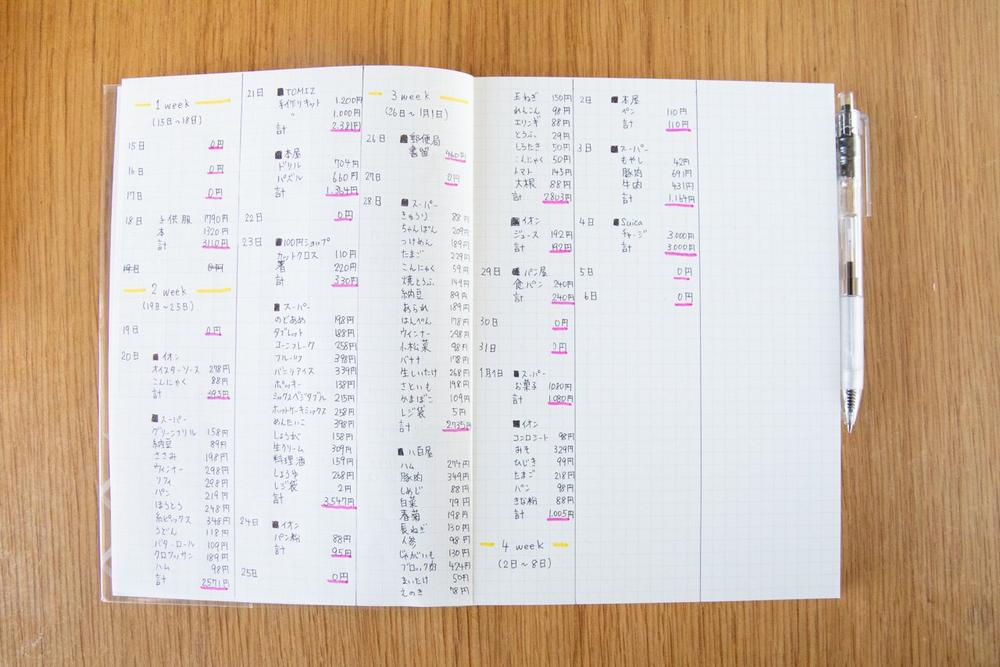 1 week
(15日~18日)
15日 0円
16日 0円
17日 0円
18日 子供服 1790円
本 1320円
計 3110円
19日 0円
2 week
(19日~25日)
19日 0円
20日 イオン
オイスターソース 298円
こんにゃく 88円
計
スーパー
グリーンカール 158円
納豆 89円
ささみ 198円
ウィンナー 298円
ツナ 298円
パン 219円
ほうとう 248円
糸ピックス 348円
うどん 118円
バターロール 109円
クロワッサン 189円
ハム 98円
計 2571円
21日 TOMIZ
手作りキット 1.200円
〃 1.000円
計 2.381円
本屋
ドリル 704円
パズル 660円
計 1.364円
22日 0円
23日 100円ショップ
カットクロス 110円
箸 220円
計 330円
スーパー
のどあめ 198円
タブレット 188円
コーンフレーク 258円
フルーツ 398円
バニラアイス 339円
ポッキー 138円
ミックスベジタブル 215円
ホットケーキミックス 258円
めんたいこ 398円
しょうが 158円
生クリーム 309円
料理酒 159円
しょうゆ 268円
レジ袋 2円
計 3.547円
24日 イオン
パン粉 88円
計 95円
25日 0円
3 week
(26日~1月1日)
26日 郵便局
書留 460円
27日 0円
28日 スーパー
きゅうり 88円
ちゃんぽん 209円
つけめん 189円
たまご 229円
こんにゃく 59円
焼とうふ 149円
納豆 89円
あられ 189円
はんぺん 178円
ウィンナー 298円
小松菜 98円
バナナ 178円
生しいたけ 268円
さといも 198円
かまぼこ 109円
レジ袋 5円
計 2735円
八百屋
ハム 274円
豚肉 349円
しめじ 88円
白菜 79円
春菊 198円
長ねぎ 130円
人参 98円
じゃがいも 130円
ブロック肉 424円
まいたけ 50円
えのき 78円
玉ねぎ 150円
れんこん 98円
エリンギ 88円
とうふ 29円
しらたき 50円
こんにゃく 50円
トマト 143円
大根 88円
計 2803円
イオン
ジュース 192円
計 192円
29日 パン屋
食パン 240円
計 240円
30日 0円
31日 0円
1月1日 スーパー
お菓子 1080円
計 1.080円
イオン
コンロシート 98円
みそ 329円
ひじき 99円
たまご 218円
パン 98円
きな粉 88円
計 1.005円
4 week
(2日~8日)
2日 本屋
ペン 110円
計 110円
3日 スーパー
もやし 42円
豚肉 691円
牛肉 431円
計 1.164円
4日 Suica
チャージ 3000円
計 3.000円
5日 0円
6日 0円